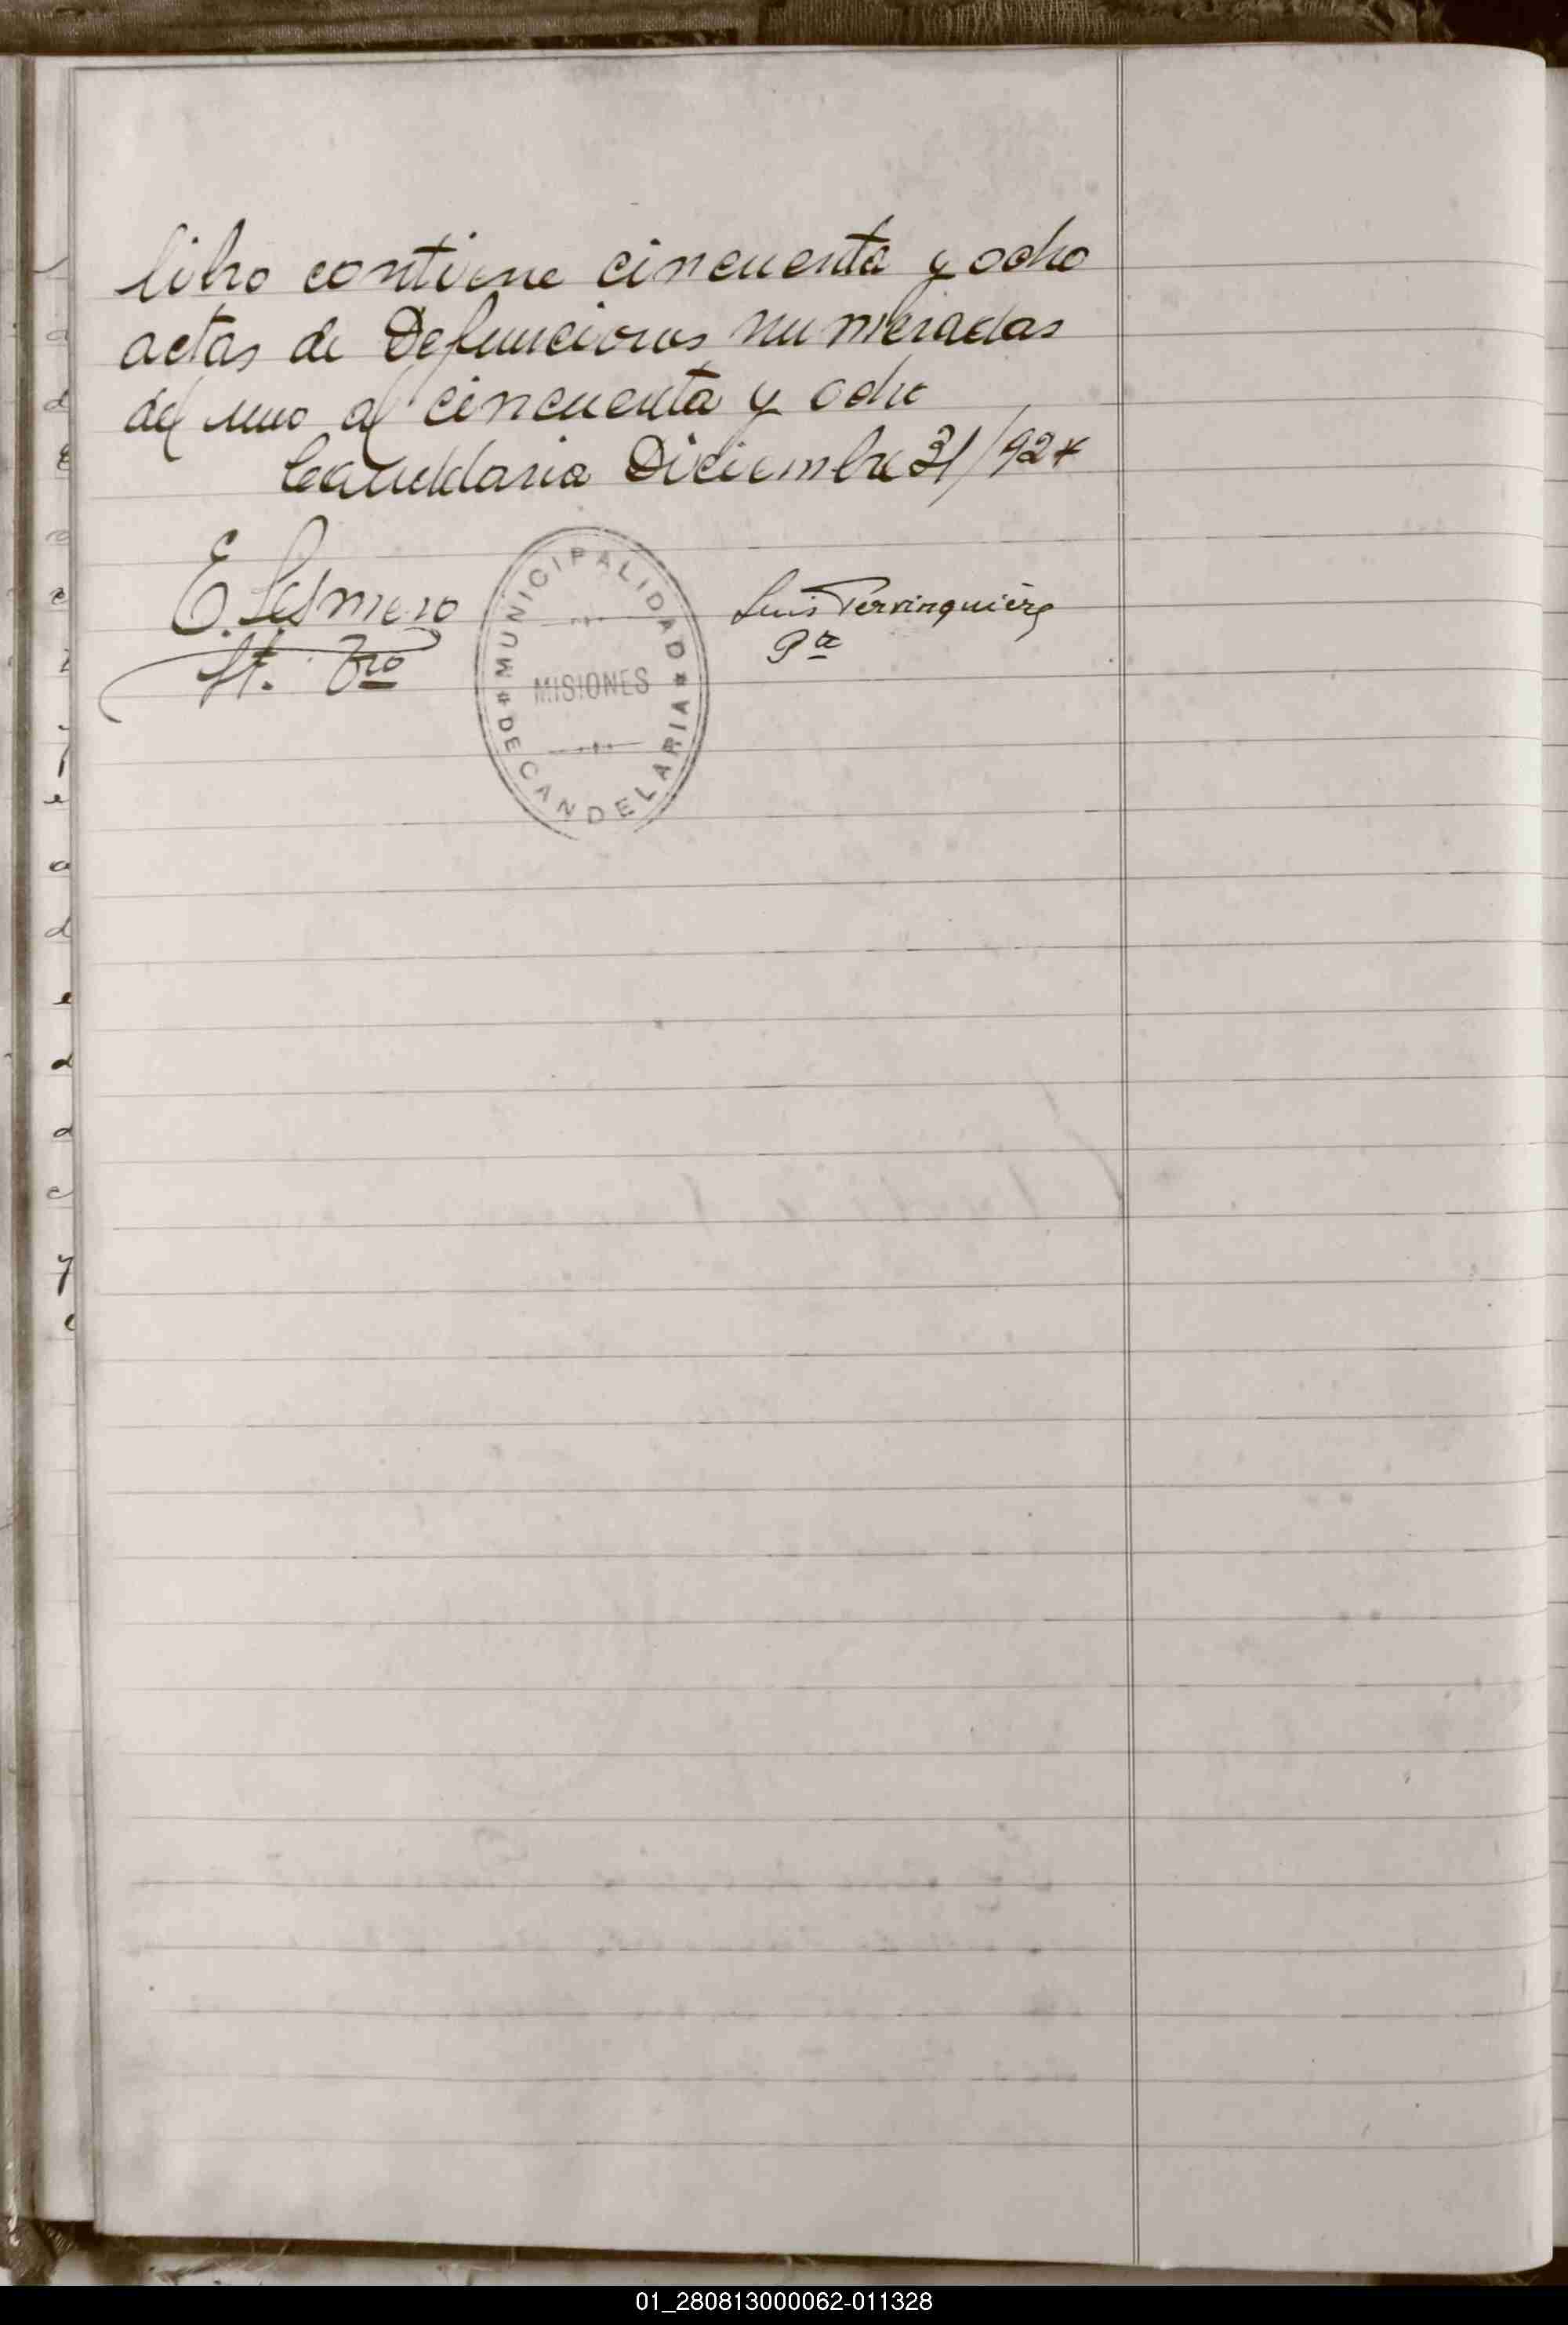 libro contiene cincuenta y ocho
actas de Defunciones numeradas
del uno al cincuenta y ocho
Candelaria Diciembre 31/924
E.
Luis Pervinquière
MUNICIPALIDAD
DE CANDELARIA
MISIONES
01_280813000062-011328